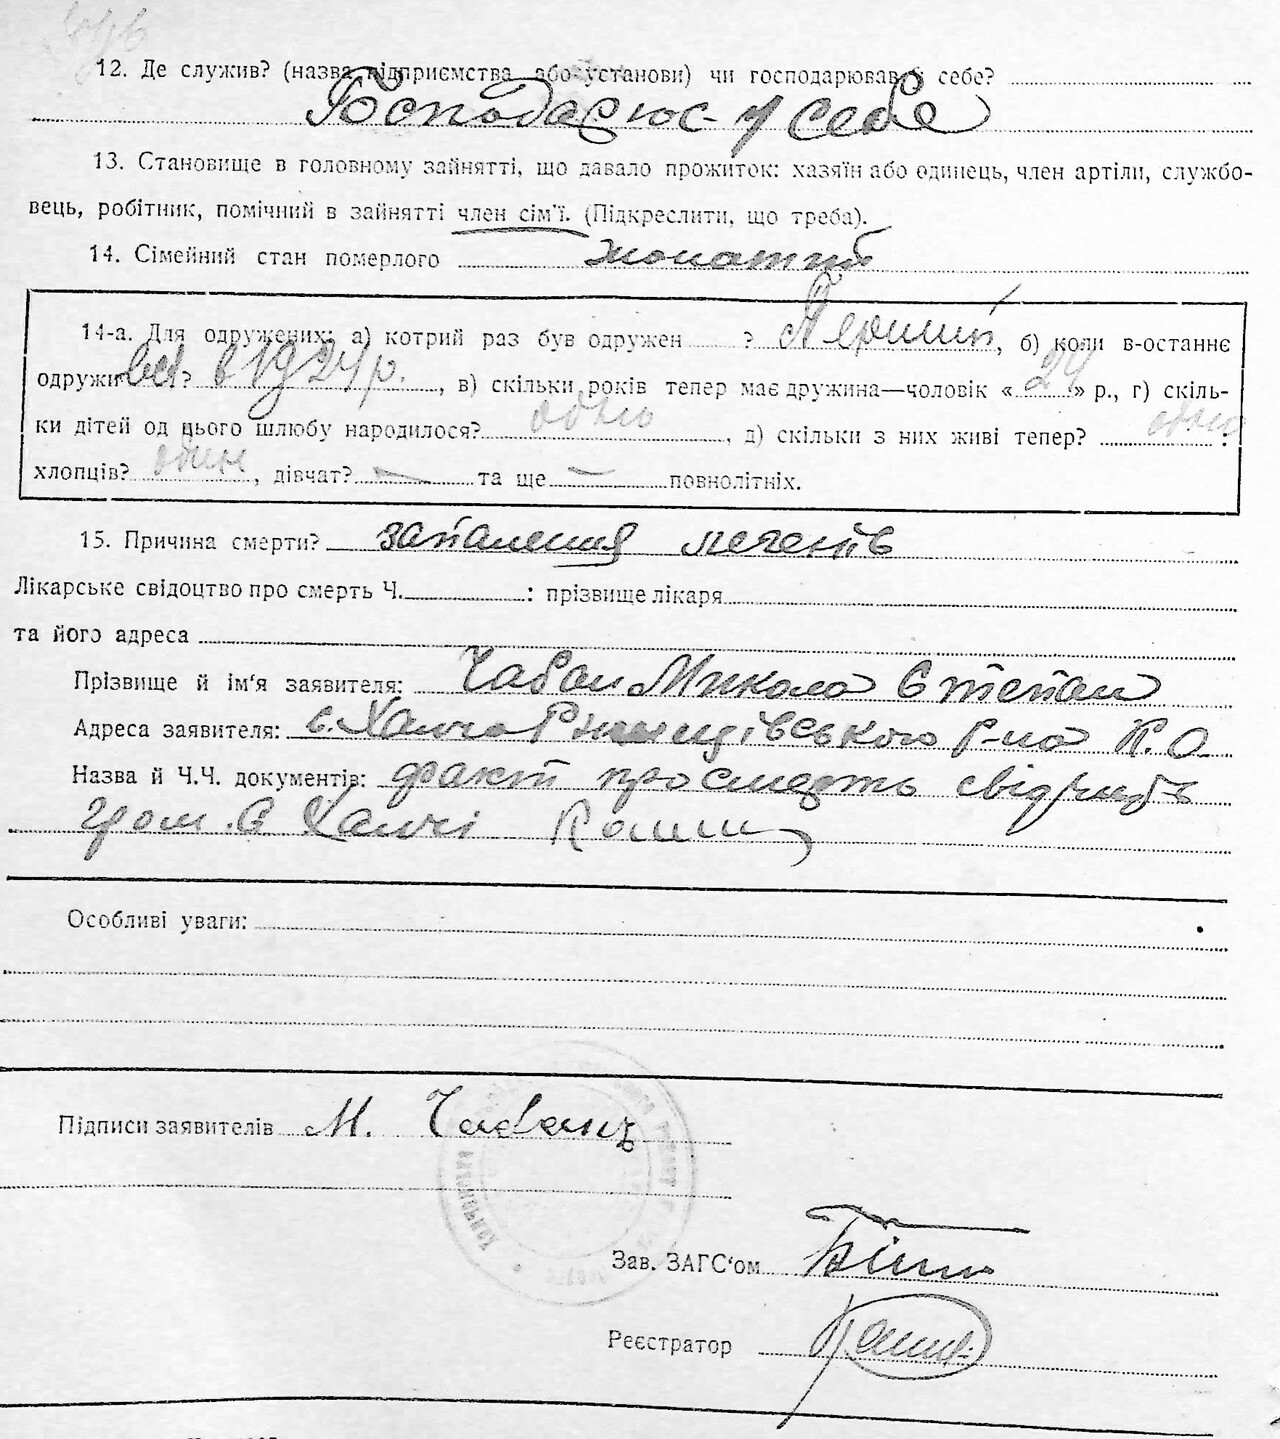 12. Де служив? (назва підприємства або установи) чи господарював у себе?
Господарює у себе
13. Становище в головному зайнятті, що давало прожиток: хазяїн або одинець, член артіли, службо-
вець, робітник, помічний в зайнятті член сім'ї. (Підкреслити, що треба).
14. Сімейний стан померлого жонатий
14-а. Для одружених: а) котрий раз був одружен ? Перший, б) коли в-останнє
одруживсь? в 1924 р., в) скільки років тепер має дружина—чоловік «24» р., г) скіль-
ки дітей од цього шлюбу народилося? одно, д) скільки з них живі тепер? одно:
хлопців? один, дівчат? — та ще — повнолітніх.
15. Причина смерти? запалення легенів
Лікарське свідоцтво про смерть Ч. : прізвище лікаря
та його адреса
Прізвище й ім'я заявителя: Чабан Микола Степан
Адреса заявителя: с. Ханча Ржищівського р-на К. О.
Назва й Ч.Ч. документів: факт про смерть свідчить
гром. с Ханчі
Особливі уваги:
Підписи заявителів М. Чабан
Зав. ЗАГС'ом
Реєстратор